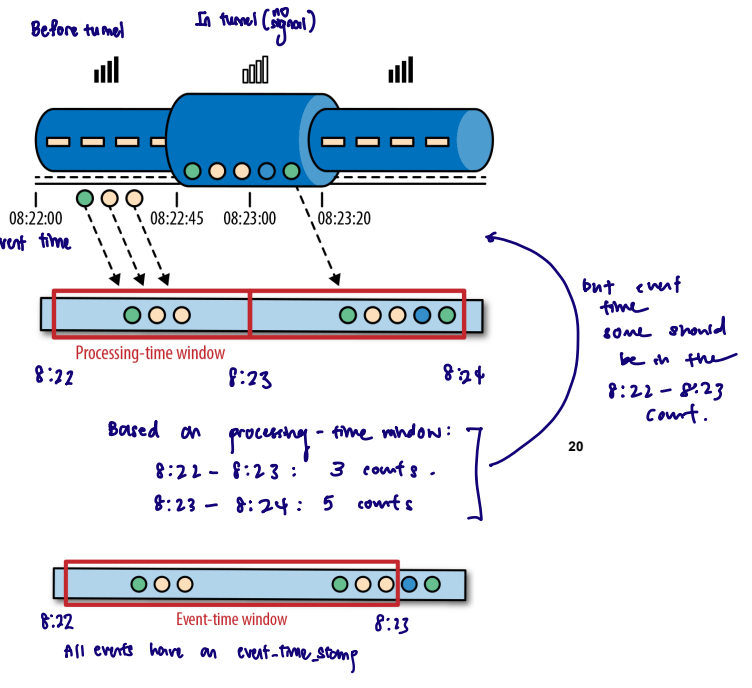 Before tunnel
In tunnel (no signal)
08:22:00
08:22:45
08:23:00
08:23:20
event time
Processing-time window
8:22
8:23
8:24
but event
time
some should
be in the
8:22 – 8:23
count.
Based on processing-time window:
8:22 – 8:23 : 3 counts.
8:23 – 8:24 : 5 counts
20
Event-time window
8:22
8:23
All events have an event_time_stamp